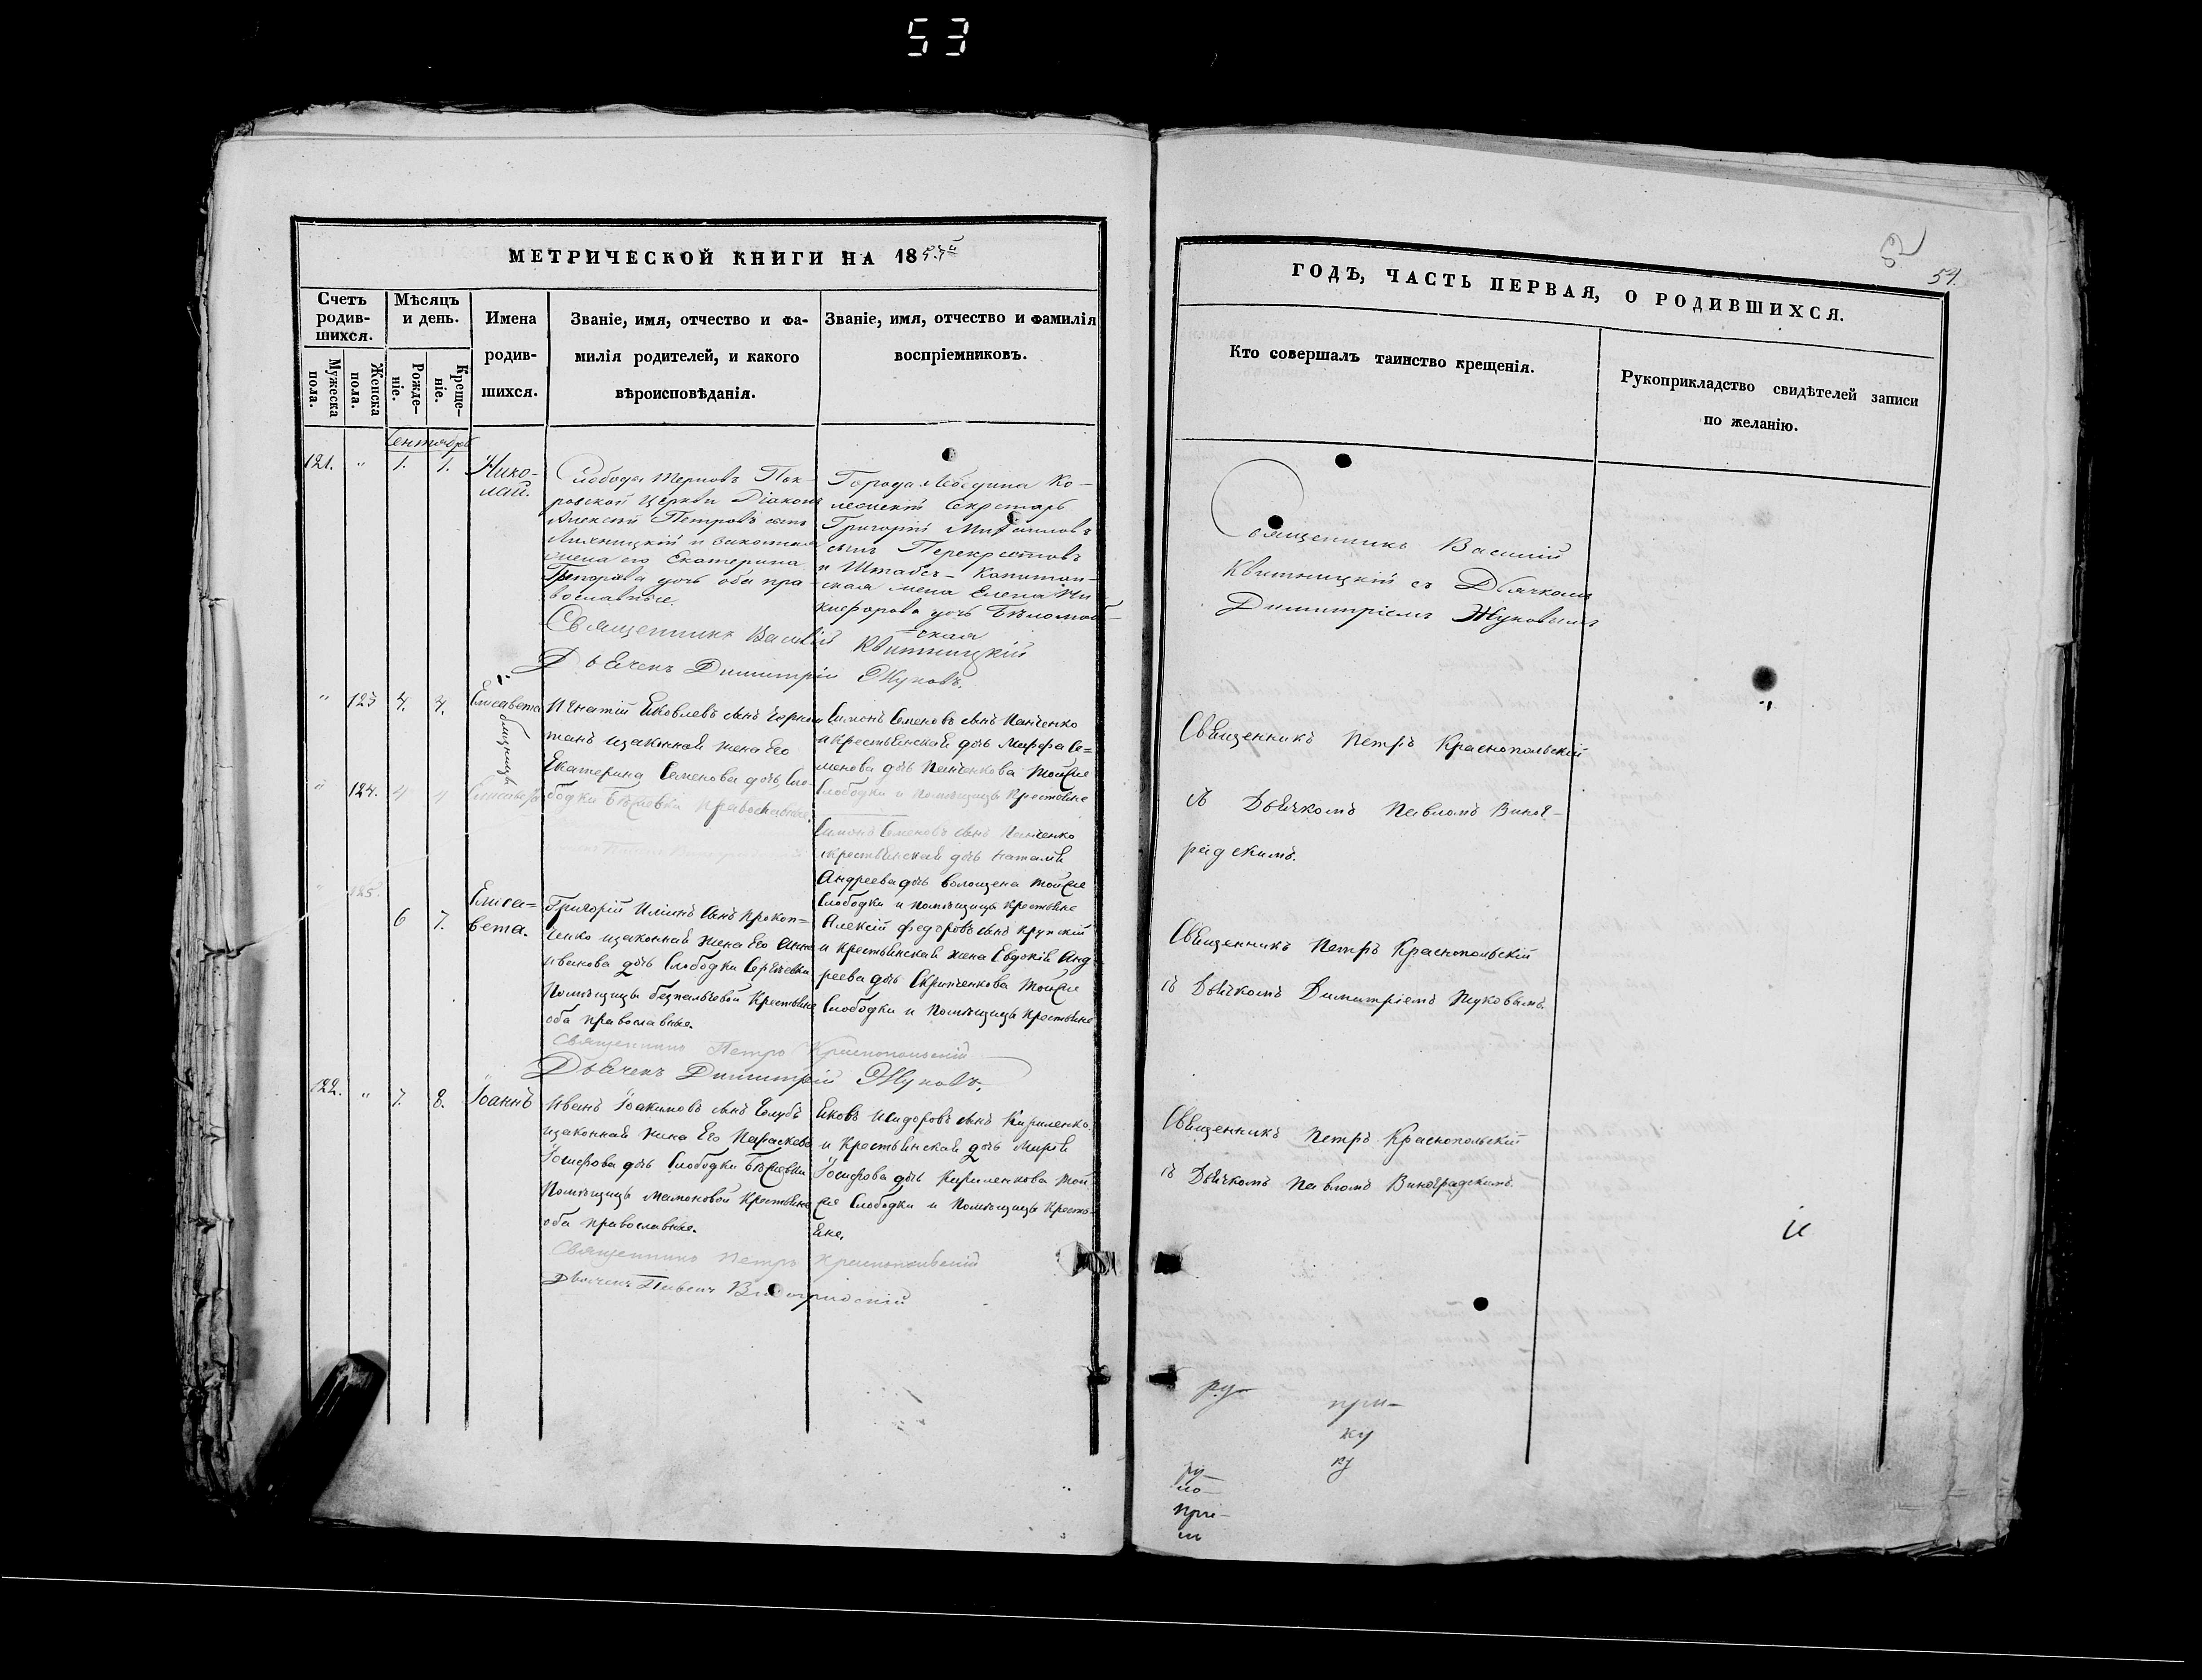 53
МЕТРИЧЕСКОЙ КНИГИ НА 18
Счетъ родившихся.
Мѣсяцъ и день.
Имена родив-
шихся.
Званіе, имя, отчество и фа-
милія родителей, и какого
вѣроисповѣданія.
Званіе, имя, отчество и фамилія
воспріемниковъ.
Мужеска пола.
Женска пола.
Рожде-
ніе.
Креще-
ніе.
Сентябрь
121. " 1. 1. Нико-
лай.
Слобода Терновъ Пок-
ровской Церкви Діаконъ
Алексѣй Петровъ сынъ
и законная
жена его Екатерина
Григорьева дочь оба пра-
вославные.
Города Лебедина Ко-
лежскій Секретарь
Григорій Михайловъ
сынъ Перекрестовъ
и Штабсъ-Капитан-
ская жена Елена Ни
кифорова дочь
ская
Священникъ Василій Квитницкій
Дьячекъ Димитрій Жуковъ.
" 123 4. 4. Елисавета
близнецы
Игнатій Яковлевъ сынъ
изаконная жена его
Екатерина Семенова дочь, Сло-
бодки православные.
Симонъ Семеновъ сынъ Панченко
и крестьянская дочь Марфа Се=
менова дочь Панченкова тойже
слободки и помѣщицы крестьяне
" 124. 4 4
Симонъ Семеновъ сынъ Панченко
и крестьянская дочь Наталія
Андреева дочь тойже
слободки и помѣщицы крестьяне
" 125. 6 7. Елиса=
вета.
Григорій Ильинъ сынъ Прокоп=
ченко изаконная жена его Анна
Иванова дочь Слободки Сергѣевки
Помѣщицы крестьяне
оба православные.
Алексій Федоровъ сынъ Крупскій
и крестьянская жена Евдокія Анд
реева дочь тойже
слободки и помѣщицы крестьяне
Священникъ Петръ Краснопольскій
Дьячекъ Димитрій Жуковъ.
122. " 7. 8. Іоаннъ
Иванъ Іоакимовъ сынъ Голубъ
изаконная жена его Параскева
Іосифова дочь Слободки
Помѣщицы Мамоновой крестьяне
оба православные.
Яковъ Исидоровъ сынъ Кириленко
и крестьянская дочь Марія
Іосифова дочь Кириленкова той
же слободки и помѣщицы кресть-
яне.
Священникъ Петръ Краснопольскій
Дьячекъ Павелъ Виноградскій
54.
ГОДЪ, ЧАСТЬ ПЕРВАЯ, О РОДИВШИХСЯ.
Кто совершалъ таинство крещенія.
Рукоприкладство свидѣтелей записи
по желанію.
Священникъ Василій
Квитницкій съ Дьячкомъ
Димитріемъ Жуковымъ
Священникъ Петръ Краснопольскій
съ Дьячкомъ Павломъ Виног-
радскимъ.
Священникъ Петръ Краснопольскій
съ Дьячкомъ Димитріемъ Жуковымъ.
Священникъ Петръ Краснопольскій
съ Дьячкомъ Павломъ Виноградскимъ.
и
ру-
при-
ку
ку